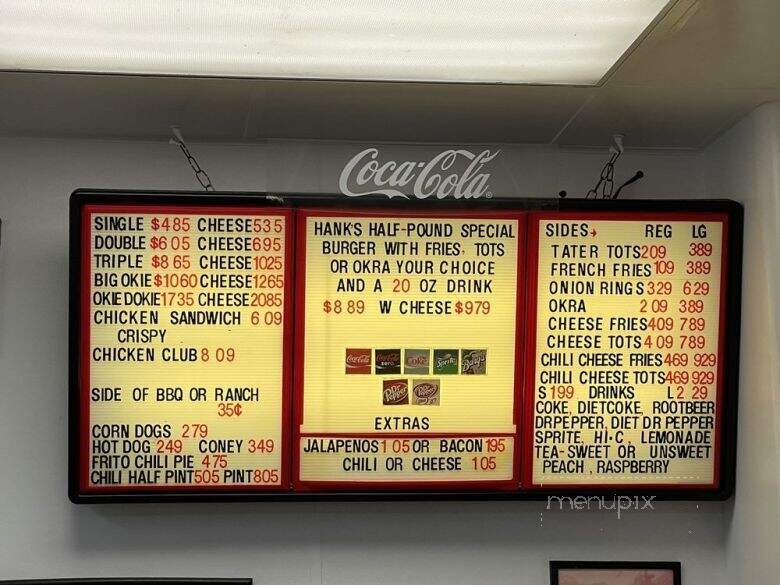 Coca-Cola
SINGLE $485 CHEESE535
DOUBLE $6 05 CHEESE695
TRIPLE $8 65 CHEESE1025
BIG OKIE $1060 CHEESE1265
OKIE DOKIE1735 CHEESE2085
CHICKEN SANDWICH 6 09
CRISPY
CHICKEN CLUB 8 09
SIDE OF BBQ OR RANCH
35¢
CORN DOGS 279
HOT DOG 249 CONEY 349
FRITO CHILI PIE 475
CHILI HALF PINT505 PINT805
HANK'S HALF-POUND SPECIAL
BURGER WITH FRIES, TOTS
OR OKRA YOUR CHOICE
AND A 20 OZ DRINK
$8 89 W CHEESE $979
Coca-Cola Coca-Cola zero Coke Sprite Barq's
Dr Pepper Dr Pepper
EXTRAS
JALAPENOS 1 05 OR BACON 195
CHILI OR CHEESE 1 05
SIDES→ REG LG
TATER TOTS209 389
FRENCH FRIES 109 389
ONION RINGS 329 629
OKRA 2 09 389
CHEESE FRIES409 789
CHEESE TOTS 4 09 789
CHILI CHEESE FRIES 469 929
CHILI CHEESE TOTS469 929
S 199 DRINKS L2 29
COKE, DIETCOKE, ROOTBEER
DRPEPPER, DIET DR PEPPER
SPRITE, HI-C, LEMONADE
TEA-SWEET OR UNSWEET
PEACH, RASPBERRY
menupix